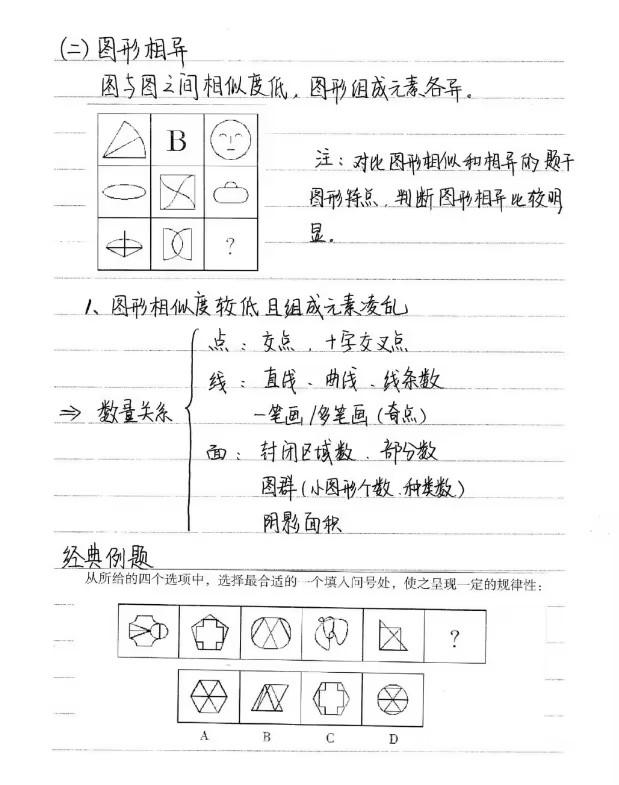 (二) 图形相异
图与图之间相似度低，图形组成元素各异。
B
?
注：对比图形相似和相异的题干
图形特点，判断图形相异比较明
显。
1、图形相似度较低且组成元素凌乱
⇒ 数量关系
点：交点、十字交叉点
线：直线、曲线、线条数
一笔画/多笔画（奇点）
面：封闭区域数、部分数
图群（小图形个数、种类数）
阴影面积
经典例题
从所给的四个选项中，选择最合适的一个填入问号处，使之呈现一定的规律性：
?
A B C D